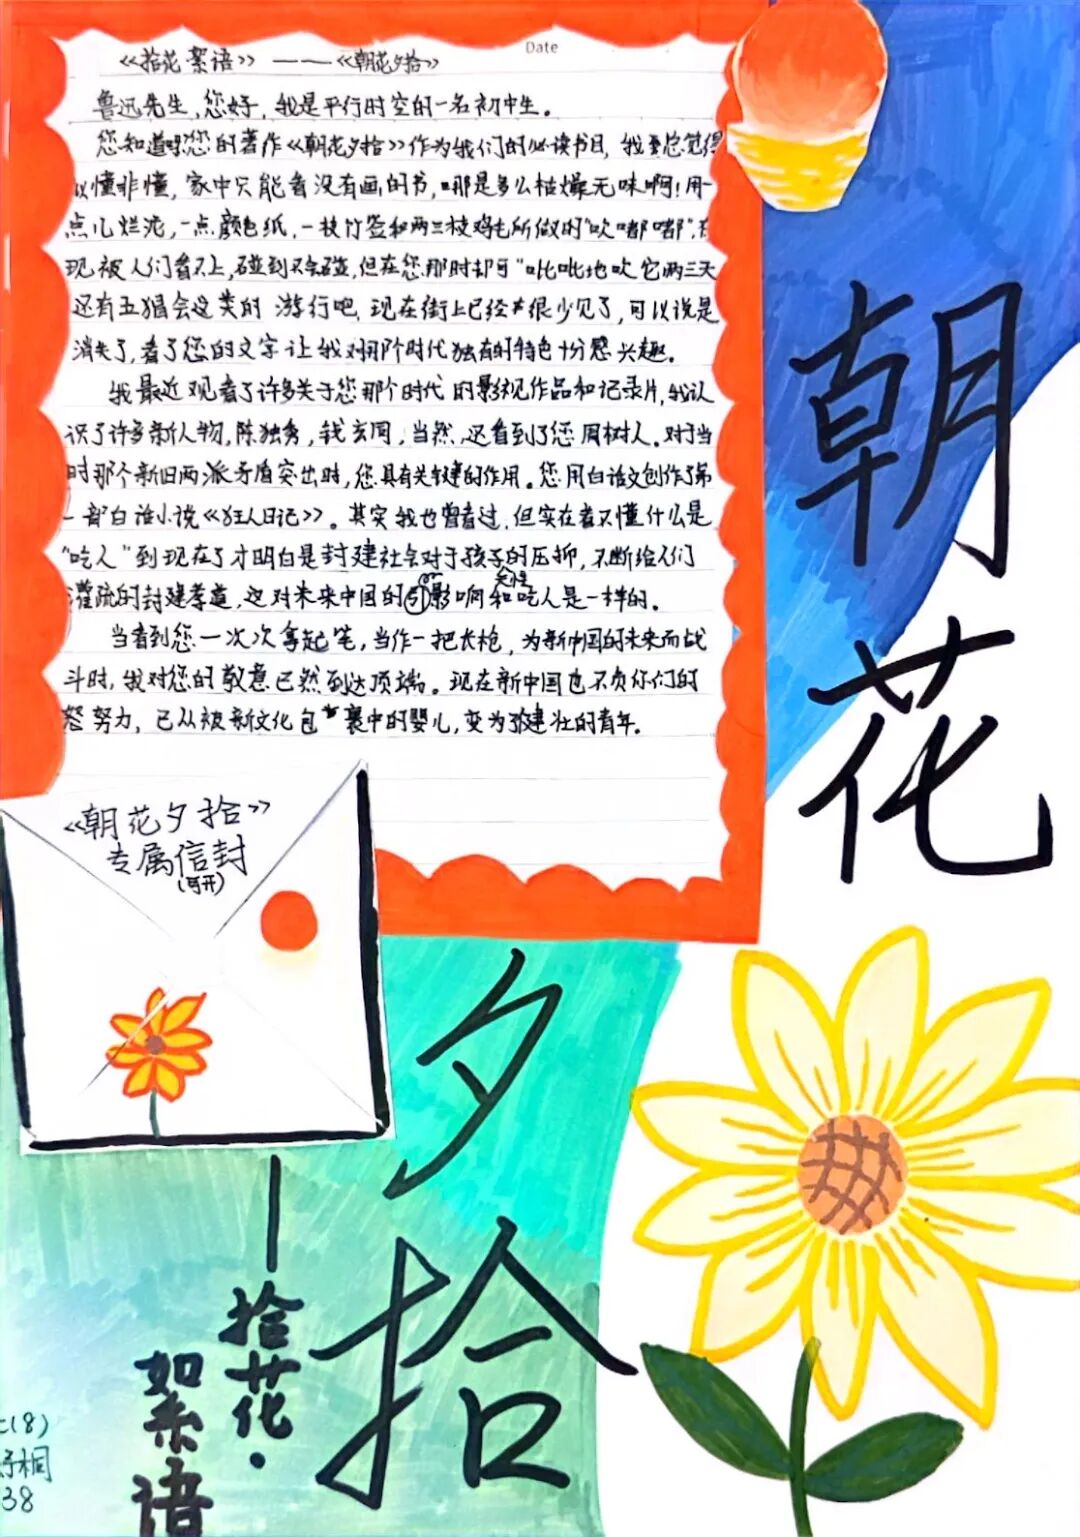 Date
《拾花絮语》——《朝花夕拾》
鲁迅先生,您好,我是平行时空的一名初中生。
您知道吗?您的著作《朝花夕拾》作为我们的必读书目,我总觉得
似懂非懂,家中只能看没有画的书,哪是多么枯燥无味啊!用一
点儿烂泥,一点颜色纸,一枝竹签和两三枝鸡毛所做的"吹嘟嘟".在
现被人们看不上,碰到不会碰,但在您那时却可"吡吡地吹它两三天
还有五猖会这类的游行吧,现在街上已经很少见了,可以说是
消失了,看了您的文字让我对那个时代独有的特色十分感兴趣。
我最近观看了许多关于您那个时代的影视作品和记录片,我认
识了许多新人物,陈独秀,钱玄同,当然,还看到了您周树人。对于当
时那个新旧两派矛盾突出时,您具有关键的作用。您用白话文创作了第
一部白话小说《狂人日记》。其实我也曾看过,但实在看不懂什么是
"吃人"到现在了才明白是封建社会对于孩子的压抑,不断给人们
灌疏的封建孝道,这对未来中国的影响和吃人是一样的。
当看到您一次次拿起笔,当作一把长枪,为新中国的未来而战
斗时,我对您的敬意已然到达顶端。现在新中国也不负你们的
努力,已从被新文化包裹中的婴儿,变为了健壮的青年。
《朝花夕拾》
专属信封
(可开)
朝花
夕拾
—拾花·
絮语
(8)
桐
38